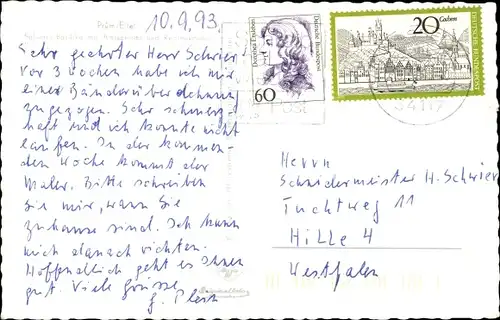 10.9.93
Sehr geehrter Herr Schwier!
Vor 3 Wochen habe ich mir
einer Bänderüberdehnung
zugezogen. Sehr schmerz-
haft und ich konnte nicht
laufen. In der kommen-
den Woche kommt der
Maler. Bitte schreiben
Sie mir, wann Sie
zuhause sind. Ich kann
mich danach richten.
Hoffentlich geht es Ihnen
gut. Viele Grüsse
Deutsche Bundespost
60
20 Cochem
34117
Herrn
Schneidermeister H. Schwier
Tuchtweg 11
Hille 4
Westfalen